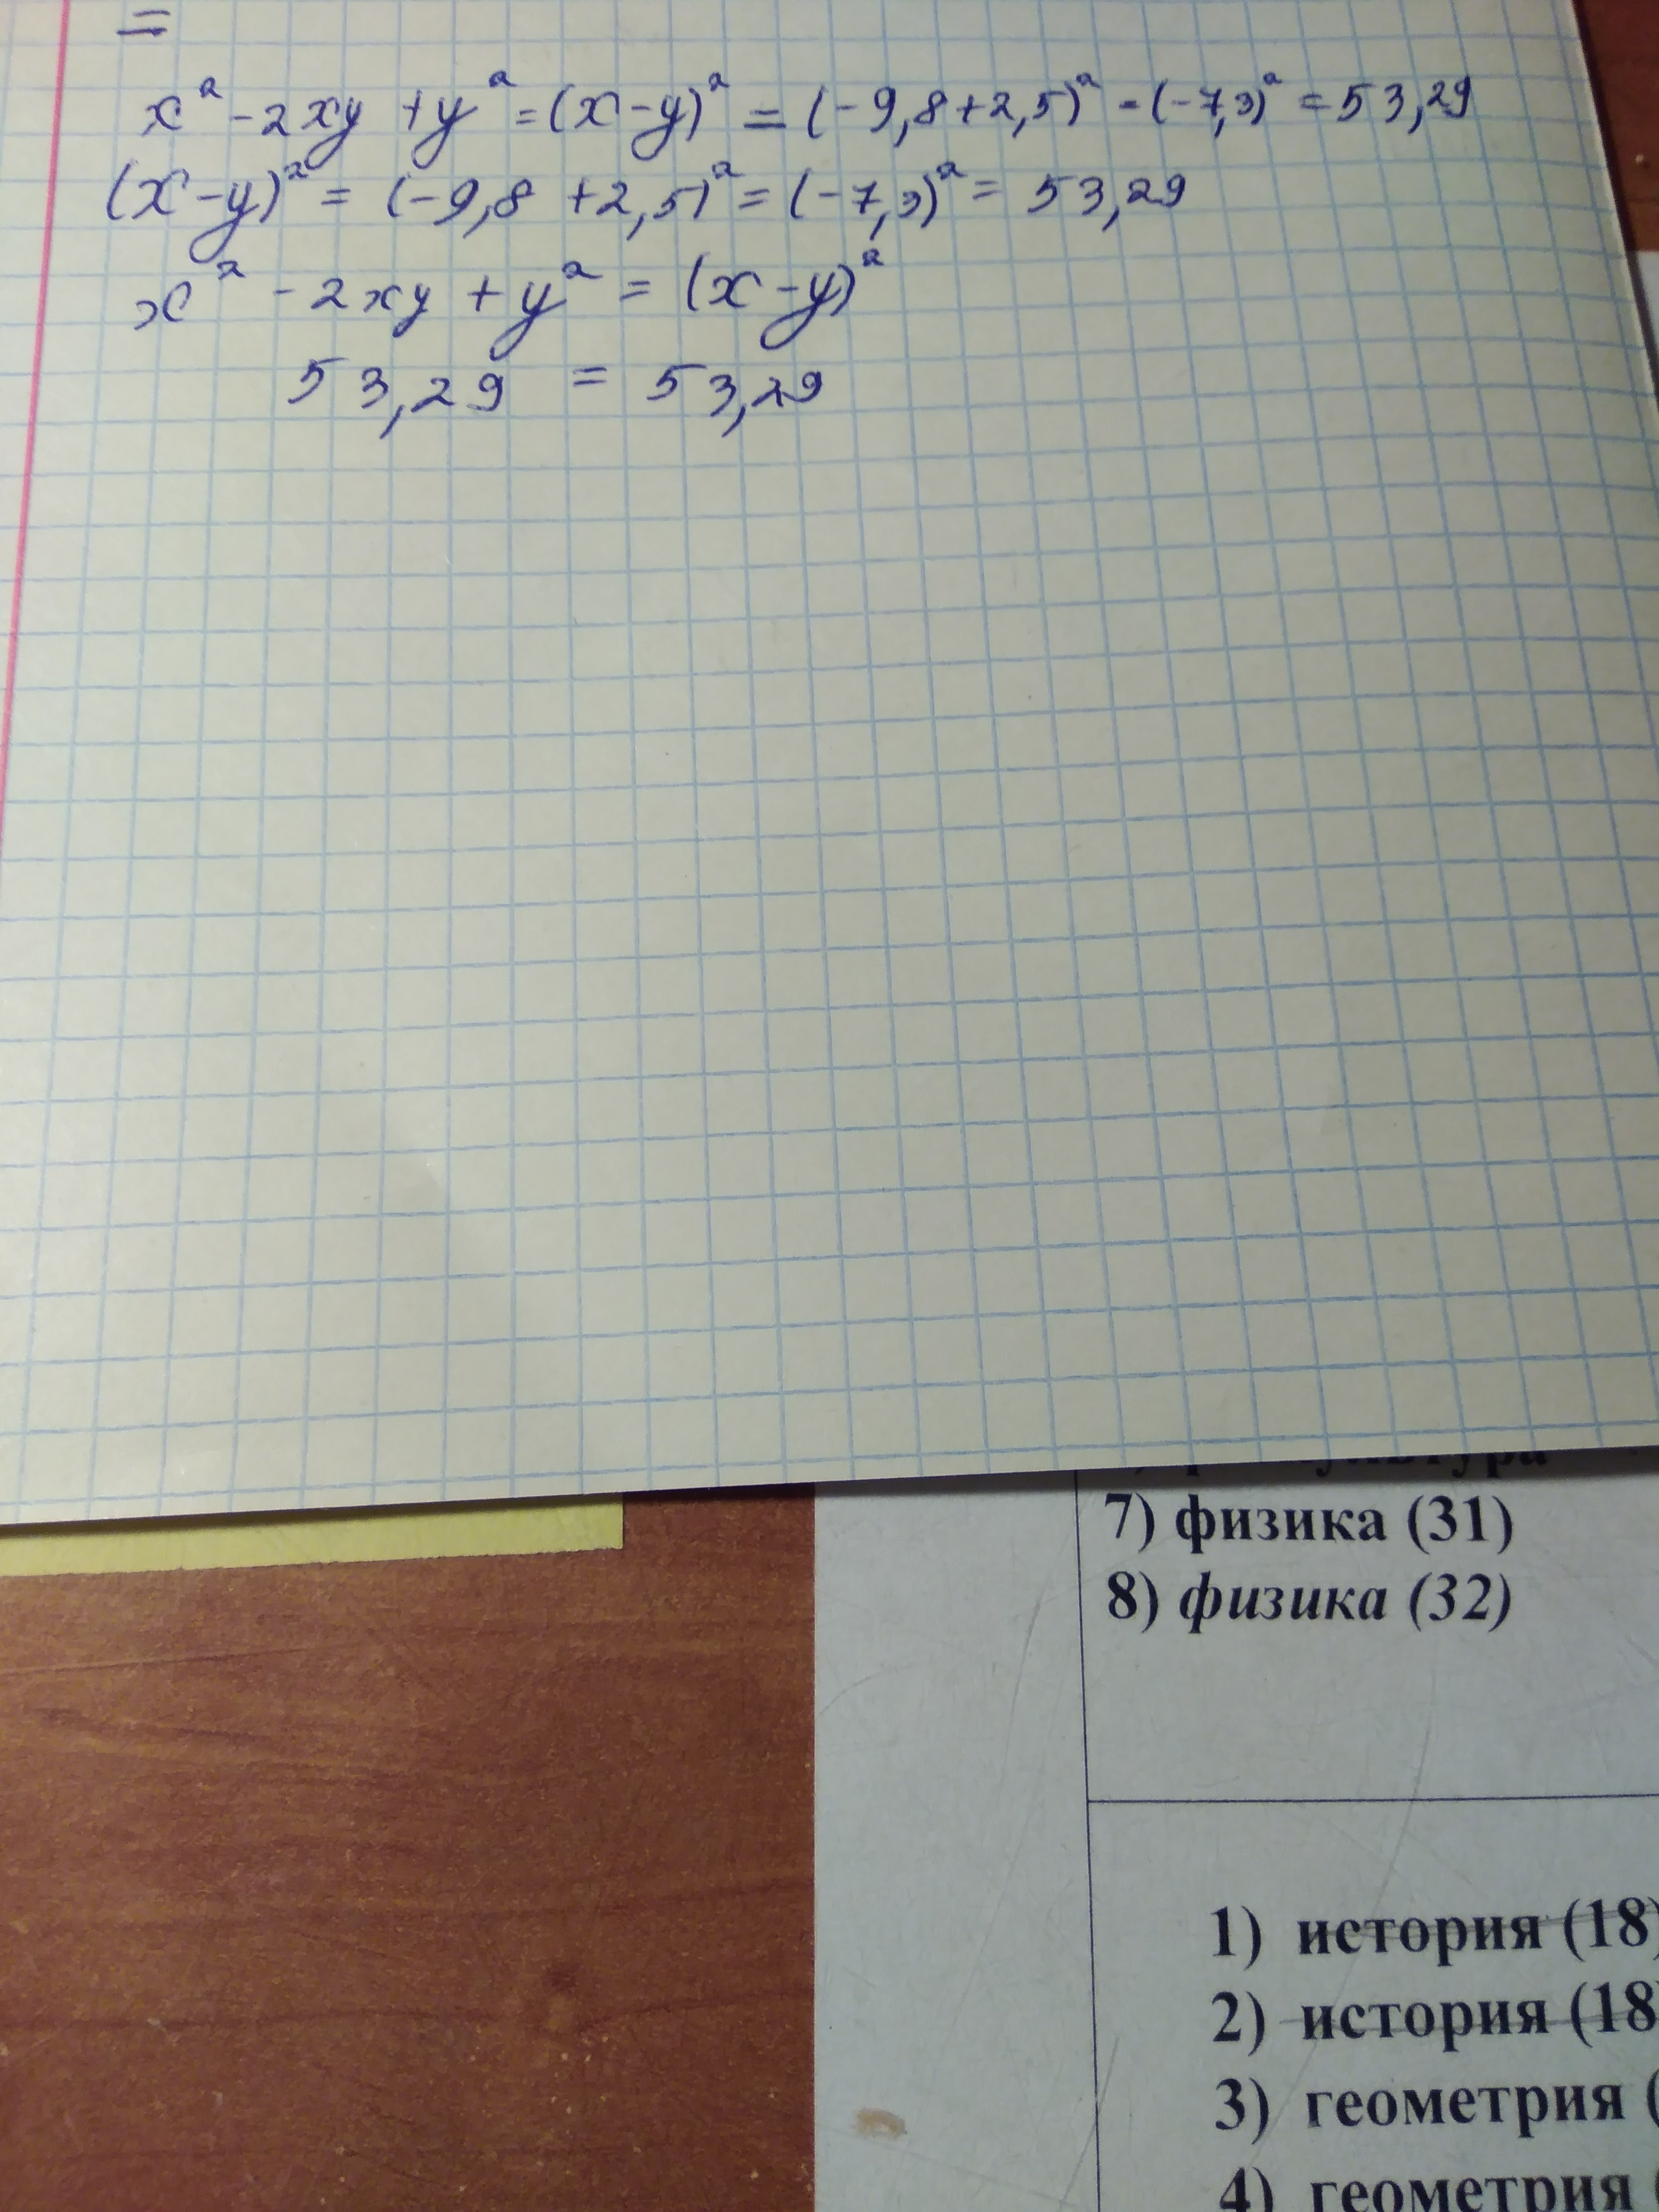 =
x² - 2xy + y² = (x-y)² = (-9,8+2,5)² - (-7,3)² = 53,29
(x-y)² = (-9,8 +2,5)² = (-7,3)² = 53,29
x² - 2xy + y² = (x-y)²
53,29 = 53,29
7) физика (31)
8) физика (32)
1) история (18)
2) история (18
3) геометрия (
4) геометрия (